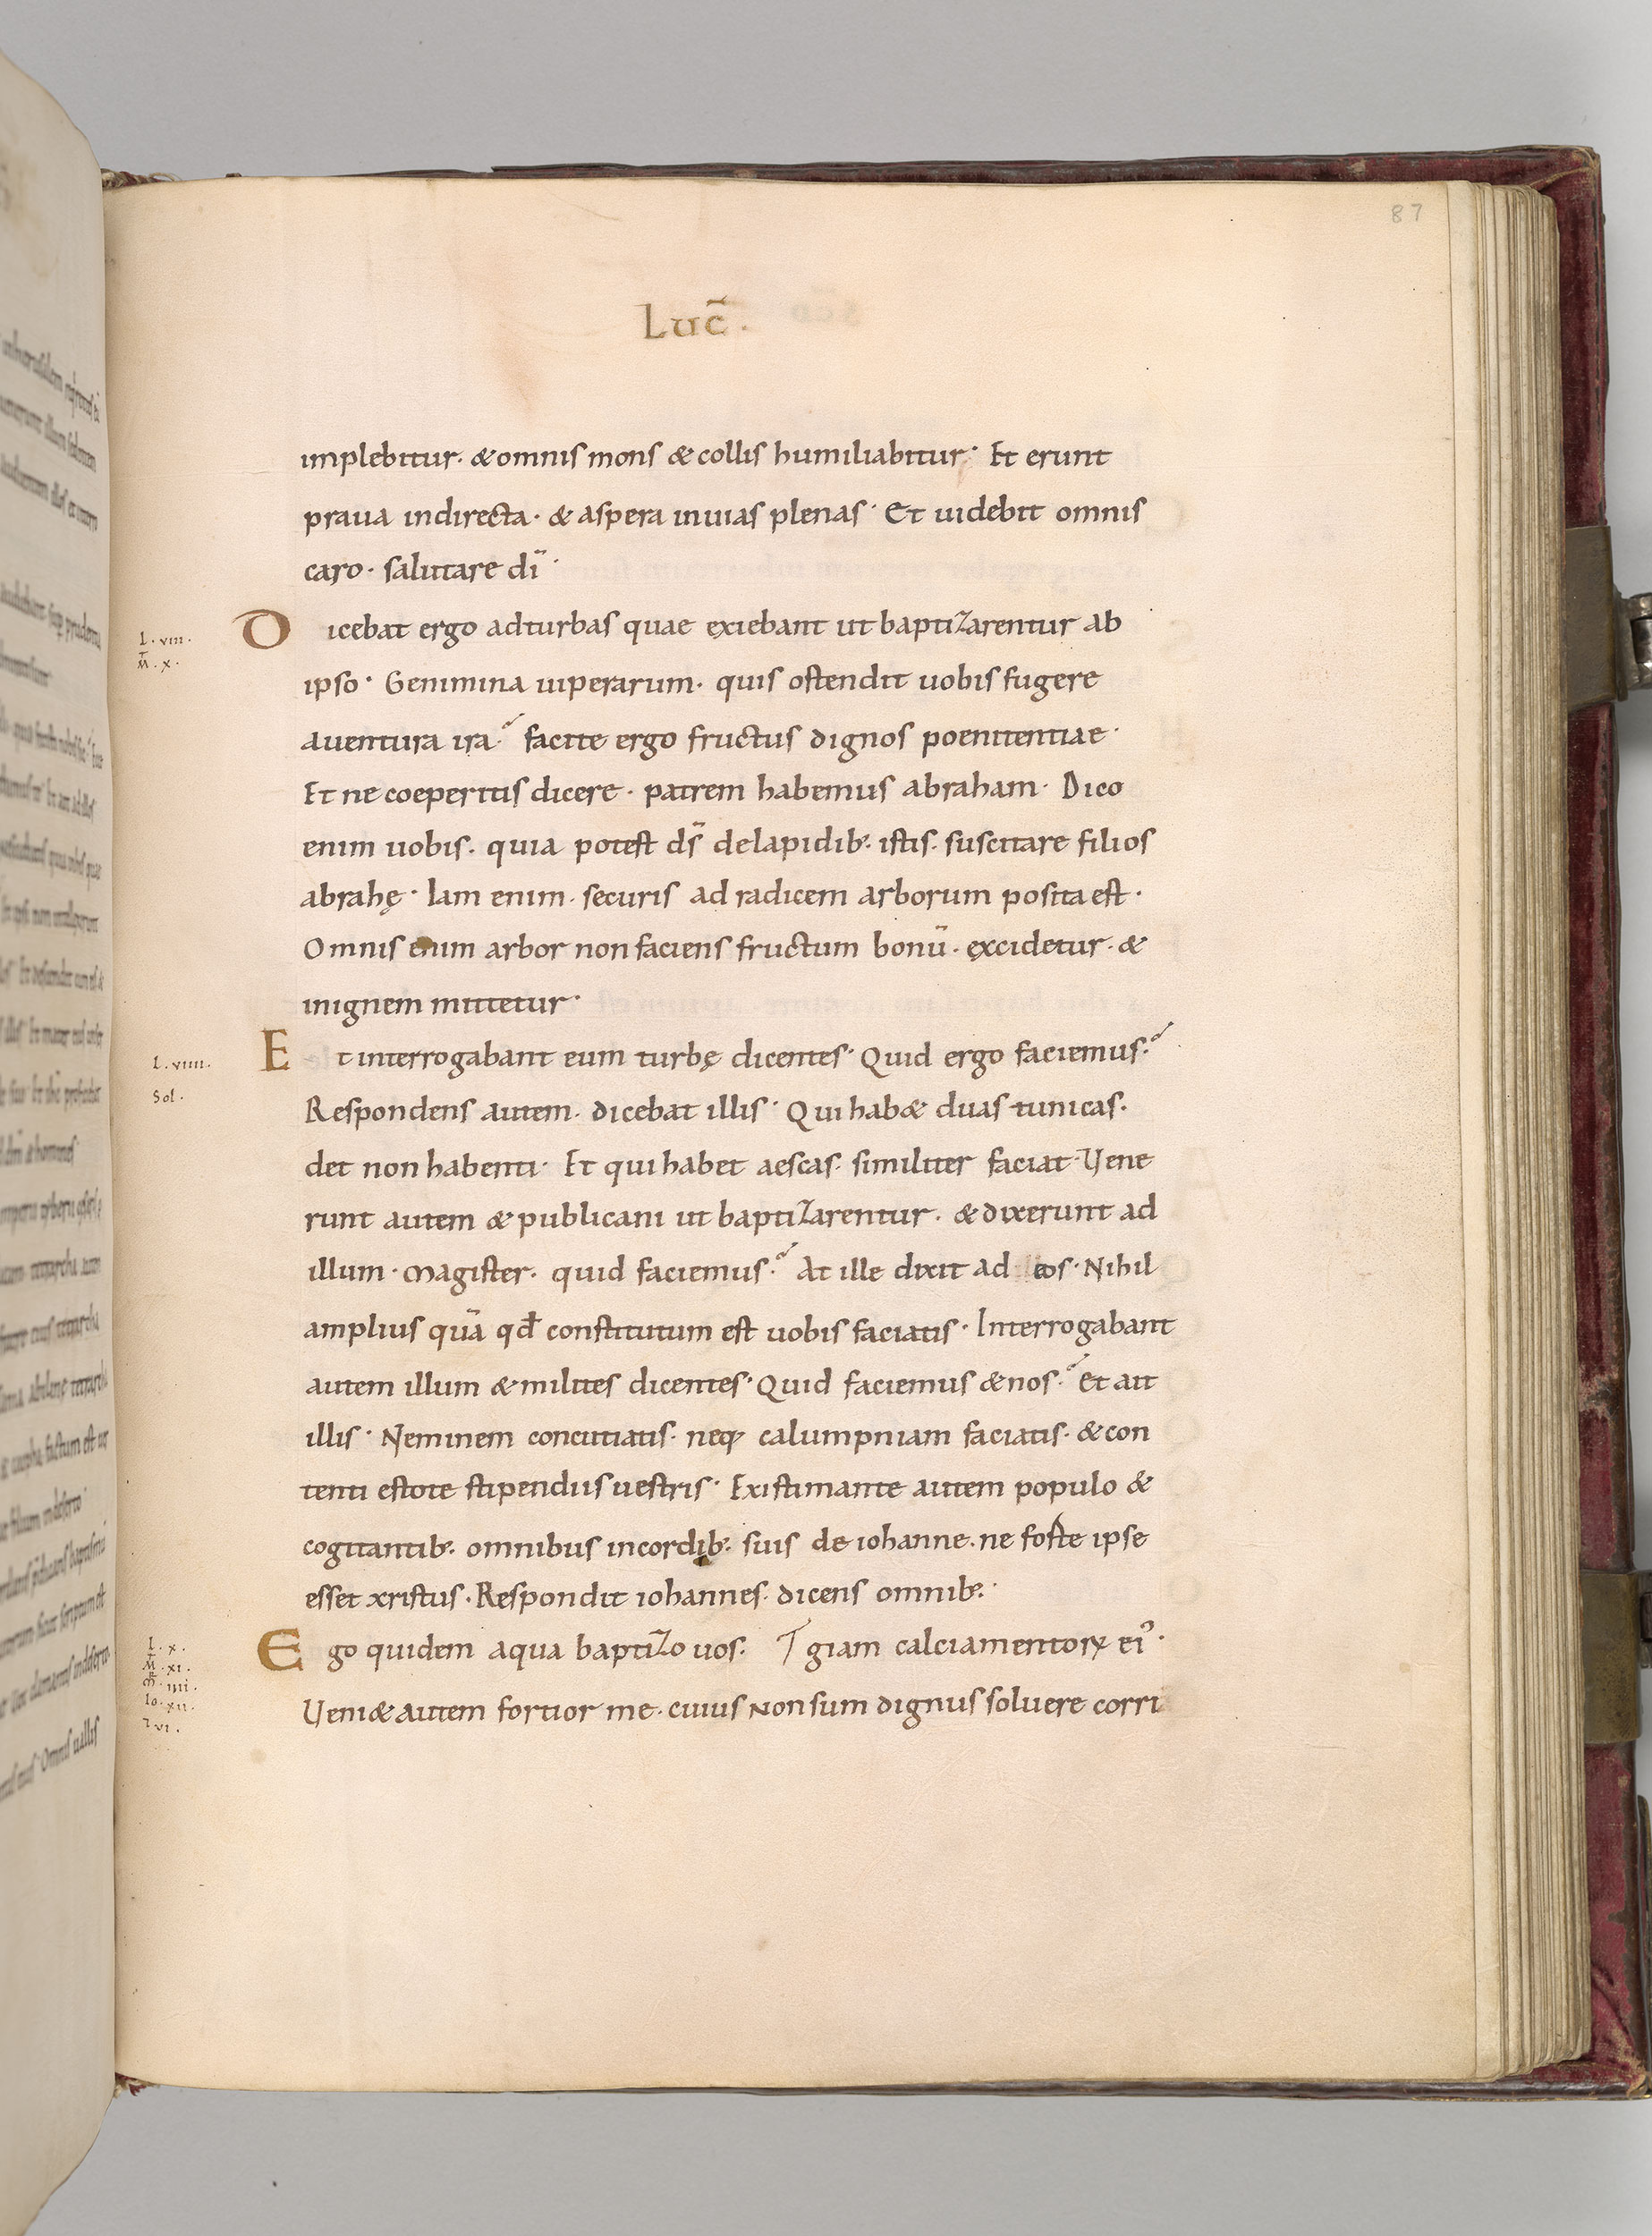 87
Luc̄.
implebitur. & omnis mons & collis humiliabitur. Et erunt
praua indirecta. & aspera inuias plenas. Et uidebit omnis
caro. salutare dī.
L. viii.
M̄. x.
Dicebat ergo adturbas quae exiebant ut baptizarentur ab
ipso. Genimina uiperarum. quis ostendit uobis fugere
auentura ira? facite ergo fructus dignos poenitentiae.
Et ne coeperitis dicere. patrem habemus abraham. Dico
enim uobis. quia potest ds̄ delapidib; istis. suscitare filios
abrahę. Iam enim. securis ad radicem arborum posita est.
Omnis enim arbor non faciens fructum bonū. excidetur. &
inignem mittetur.
L. viiii.
Sol.
Et interrogabant eum turbę dicentes. Quid ergo faciemus?
Respondens autem. dicebat illis. Qui hab& duas tunicas.
det non habenti. Et qui habet aescas. similiter faciat. Uene
runt autem & publicani ut baptizarentur. & dixerunt ad
illum. Magister. quid faciemus? At ille dixit ad eos. Nihil
amplius quā qđ constitutum est uobis faciatis. Interrogabant
autem illum & milites dicentes. Quid faciemus & nos? Et ait
illis. Neminem concutiatis. neq; calumpniam faciatis. & con
tenti estote stipendiis uestris. Existimante autem populo &
cogitantib; omnibus incordib; suis de iohanne. ne foste ipse
esset xristus. Respondit iohannes. dicens omnib;.
L. x.
M̄. xi.
M̄R. iiii.
Io. xii.
vi.
Ego quidem aqua baptizo uos. giam calciamentoꝝ eiꝰ.
Ueni& autem fortior me. cuius non sum dignus soluere corri